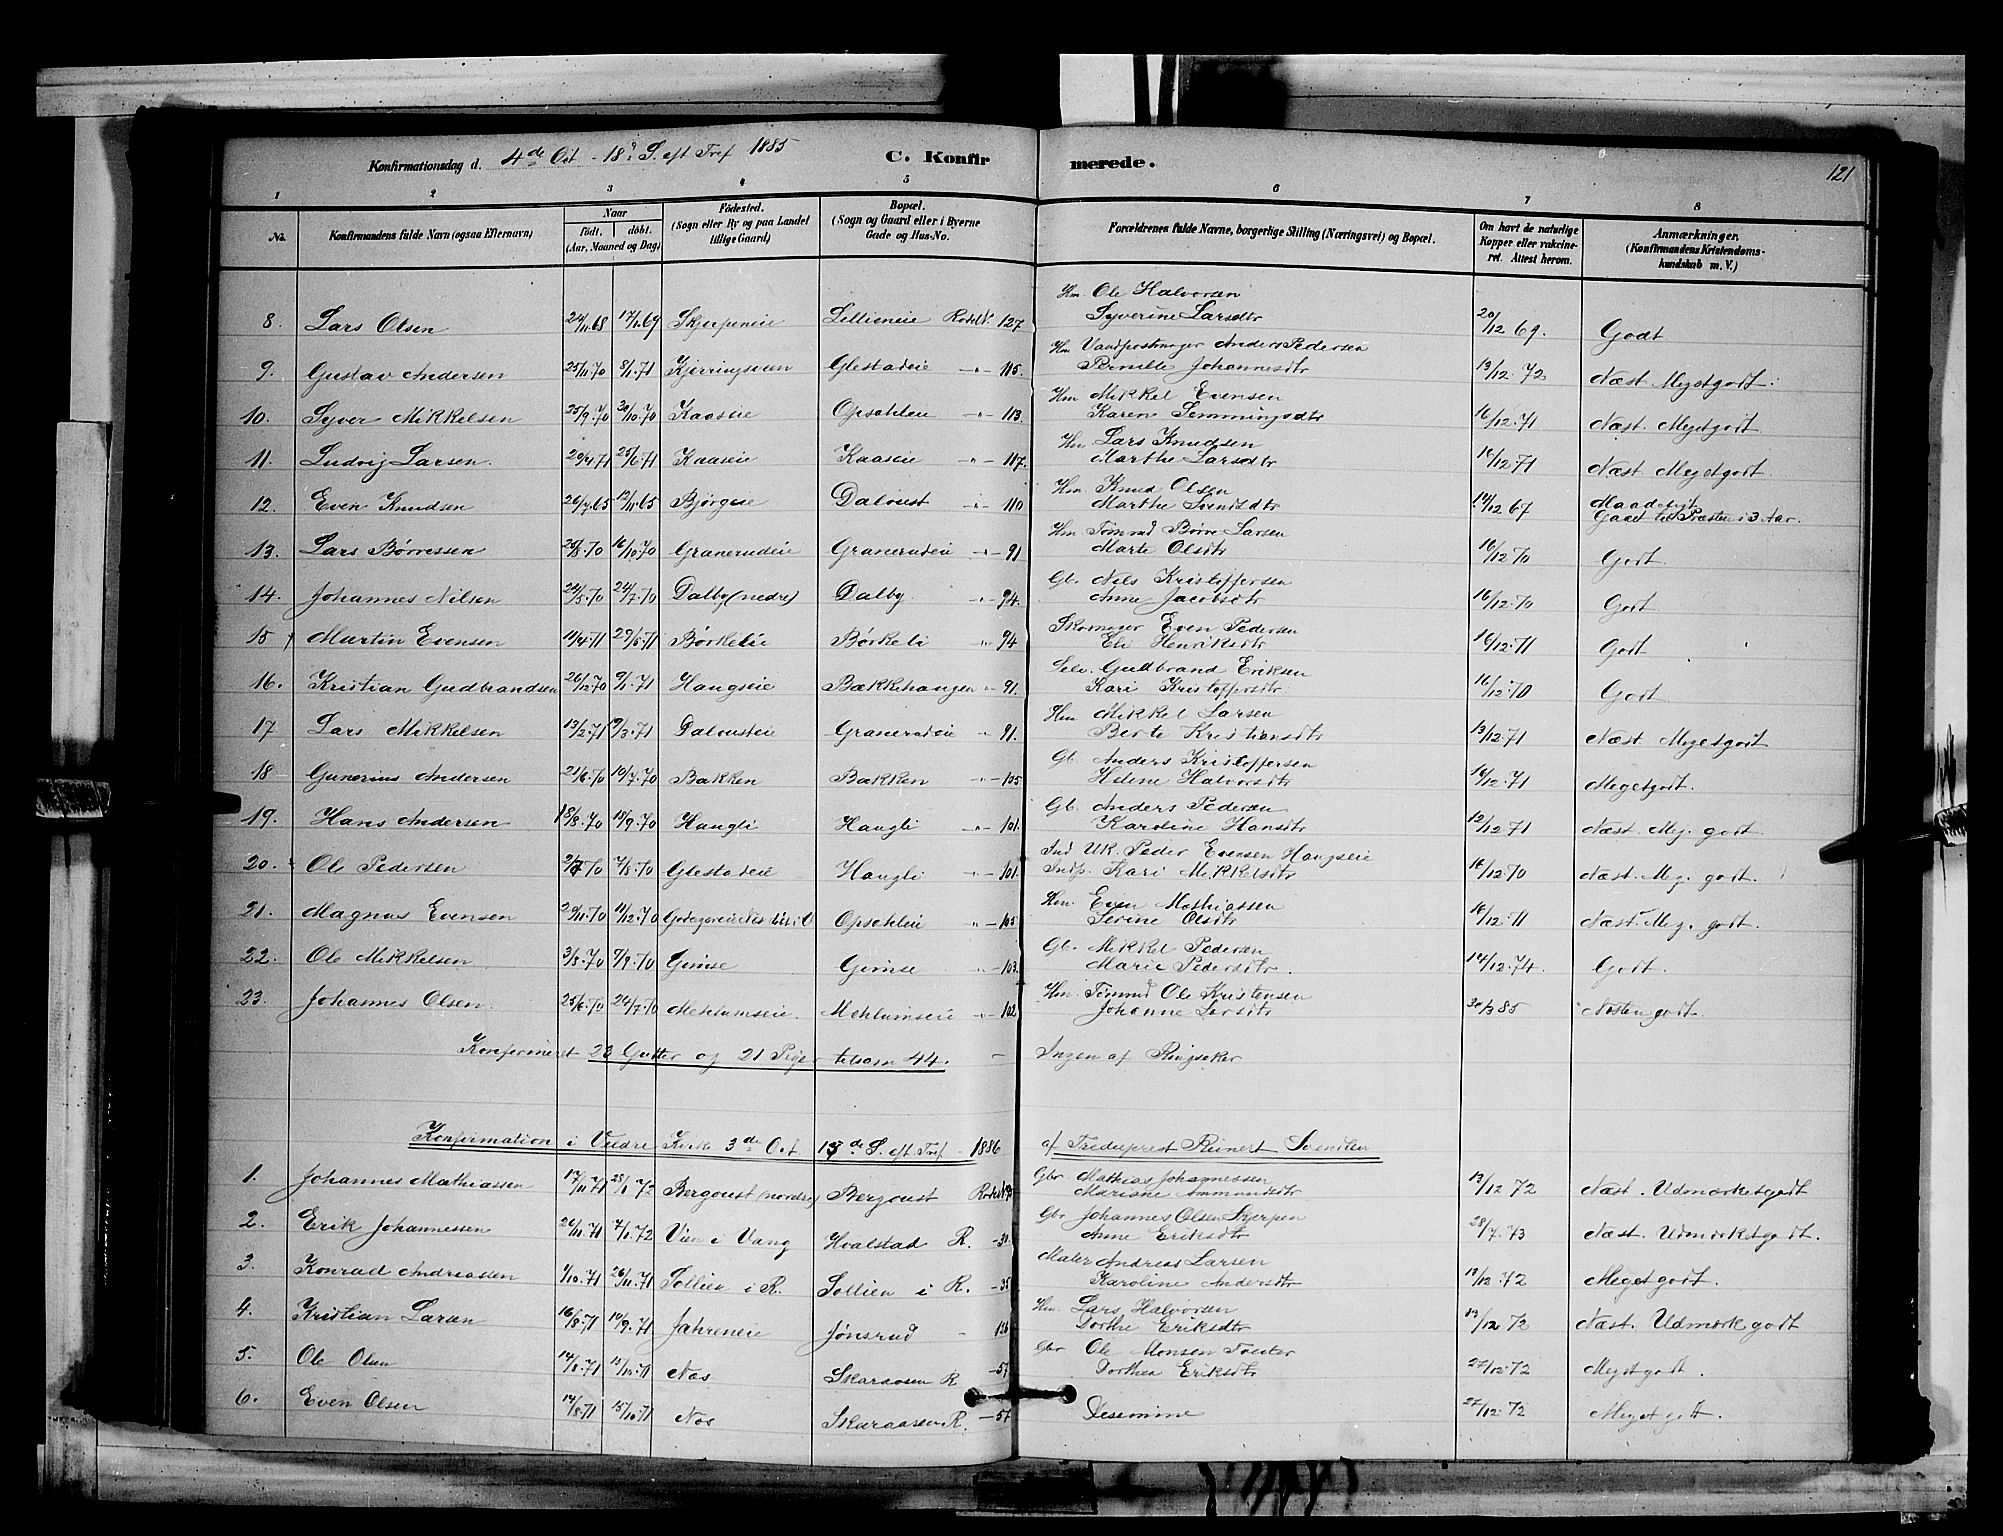 Konfirmationsdag d. 4de Oct - 18d S. eft Tref 1885 C. Konfirmerede. 121
1 2 3 4 5 6 7 8
No. Konfirmandens fulde Navn (ogsaa Efternavn) Naar født. døbt. (Aar, Maaned og Dag) Fødested. (Sogn eller By og paa Landet tillige Gaard) Bopæl. (Sogn og Gaard eller i Byerne Gade og Hus-No. Forældrenes fulde Navne, borgerlige Stilling (Næringsvei) og Bopæl. Om havt de naturlige Kopper eller vakcineret. Attest herom. Anmærkninger. (Konfirmandens Kristendomskundskab m. V.)
Hm. Ole Halvorsen
8. Lars Olsen 24/11.68 17/1.69 Skjerpeneie Lillieneie Rodel. 127 Syverine Larsdtr 20/12 69. Godt
Hm Vandpostmager Anders Pedersen
9. Gustav Andersen 25/11.70 8/1.71 Kjerringsveen Glestadeie -"- 115. Pernille Johannesdtr 13/12.72 Næst Megetgodt.
Hm Mikkel Evensen
10. Syver Mikkelsen 25/9.70 30/10.70 Kaaseie Opsahleie -"- 113. Karen Semmingsdtr 16/12.71 Næst. Megetgodt
Hm. Lars Knudsen
11. Ludvig Larsen. 20/4 71 25/6.71 Kaaseie Kaaseie -"- 117. Marthe Larsdtr 16/12.71 Næst Megetgodt
Hm. Knud Olsen
12. Even Knudsen 26/7.65 12/11.65 Bjørgeie Daloust -"- 110 Marthe Svendsdtr 14/12 67 Maadeligt Gaaet til Præsten i 3 Aar.
Hm Tømmd Børre Larsen
13. Lars Børresen 28/8.70 16/10.70 Granerudeie Granerudeie -"- 91 Marte Olsdtr 16/12.70 Godt
Gb. Nils Kristoffersen
14. Johannes Nilsen 24/5.70 24/7.70 Dalby (nedre) Dalby. -"- 94. Anne Jacobsdtr 16/12.70 Godt
Skomager Even Pedersen
15 Martin Evensen 11/4.71 29/5.71 Børkelie Børkeli -"- 94 Eli Henriksdtr 16/12.71 Godt
Selv. Gudbrand Eriksen
16. Kristian Gudbrandsen 26/12.70 9/1.71 Haugseie Bækkehaugen -"- 91. Kari Kristoffersdtr 16/12.70 Godt
Hm Mikkel Larsen
17 Lars Mikkelsen 13/2.71 19/3.71 Dalousteie Granerudeie -"- 91. Berte Kristiansdtr 13/12.71 Næst. Megetgodt
Gb. Anders Kristoffersen
18 Gunerius Andersen 21/6.70 10/7.70 Bakken Bakken -"- 105 Helene Halvorsdtr 16/12.71 Megetgodt.
Gb. Anders Pedersen
19. Hans Andersen 18/8.70 18/9.70 Haugli Haugli -"- 101. Karoline Hansdtr 12/12 71 Næst. Meg. godt
Ind UK. Peder Evensen Haugseie
20. Ole Pedersen 2/7 70 7/8.70 Glestadeie Haugli -"- 101. Indp. Kari Mikkelsdtr 16/12.70 Næst. Meg. godt.
Hm. Even Mathiassen
21. Magnus Evensen 20/11.70 11/12.70 Opsahleie -"- 105 Serine Olsdtr 16/12.71 Næst. Meg. godt.
Gb. Mikkel Pedersen
22. Ole Mikkelsen 3/8.70 9/9.70 Gimse Gimse -"- 103. Marie Pedersdtr. 14/12.74. Godt.
Hm. Tømmd Ole Kristensen
23. Johannes Olsen. 25/6.70 24/7.70 Mehlumseie. Mehlumseie -"- 102 Johanne Larsdtr 30/3 85 Næsten godt.
Konfirmeret 23 Gutter og 21 Piger tilsam 44. - Ingen af Ringsaker
Konfirmation i Veldre Kirke 3de Oct 15de S. eft Tref - 1886 af Tredieprest Reinert Svendsen
Gbr Mathias Johannessen
1. Johannes Mathiassen 17/11.71 28/1 72 Bergoust (nordre) Bergoust Mariane Ammundsdtr 13/12 72 Næst. Udmerketgodt
Gbr Johannes Olsen Skjerpen
2. Erik Johannessen 26/11.71 7/1.72 Vien i Vang Hvalstad R. -30. Anne Eriksdtr 28/7.73 Næst. Udmerketgodt.
Maler Andreas Larsen
3. Konrad Andreassen 1/10.71 26/11.71 Sollien i R. Sollien i R. -35 Karoline Andersdtr 13/12.72 Megetgodt.
Hm. Lars Halvorsen
4. Kristian Larsen 16/8.71 10/9.71 Jahreneie Jønsrud - 126 Dorthe Eriksdtr 13/12 72 Næst. Udmerk godt
Gbr Ole Monsen Toster
5. Ole Olsen 14/8.71 15/10.71 Næs Skaraasen R -57 Dorthea Eriksdtr 27/12.72 Megetgodt.
6. Even Olsen 14/8.71 15/10.71 Næs Skaraasen R. -57 Desamme 27/12.72 Megetgodt.